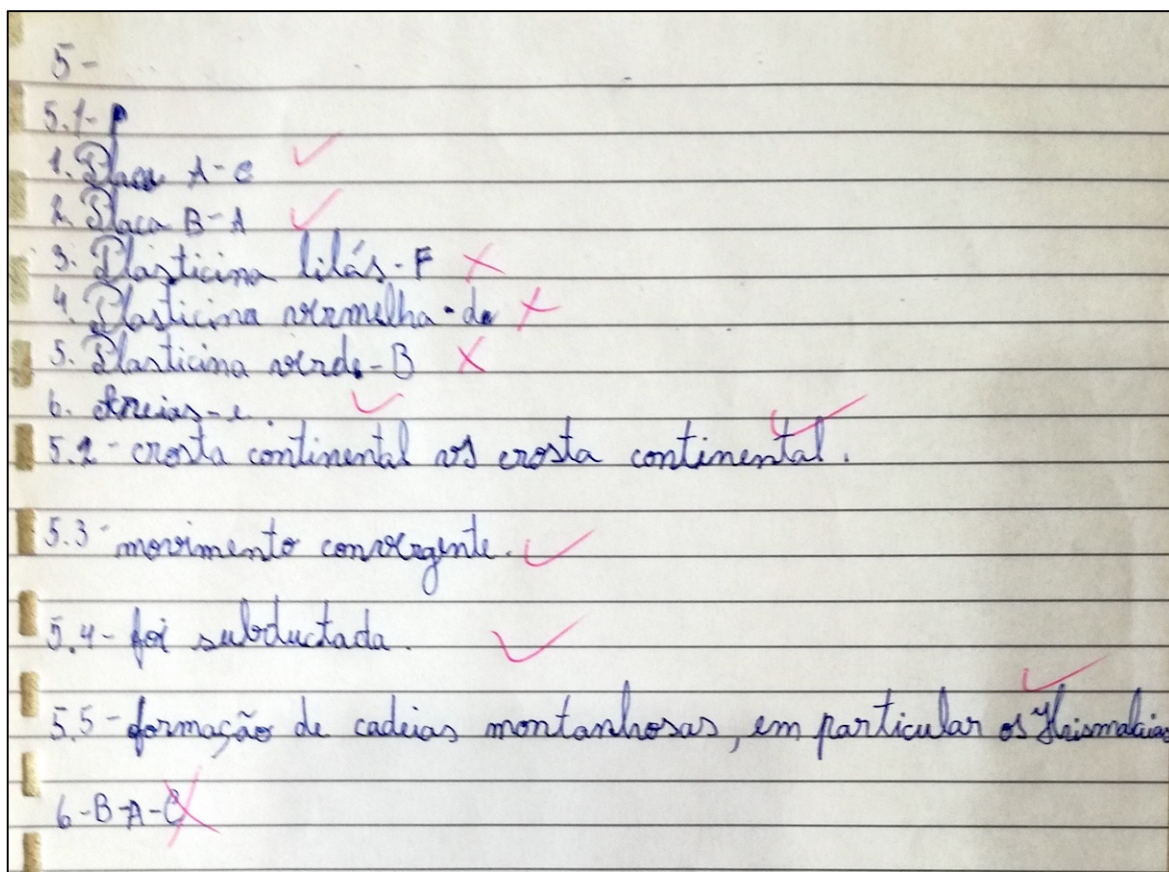 5-
5.1-
1. Placa A-C
2. Placa B-A
3. Plasticina lilás-F
4. Plasticina vermelha-d
5. Plasticina verde-B
6. Areias-e
5.2- crosta continental vs crosta continental.
5.3- movimento convergente.
5.4- foi subductada.
5.5- formação de cadeias montanhosas, em particular os
6-B-A-C